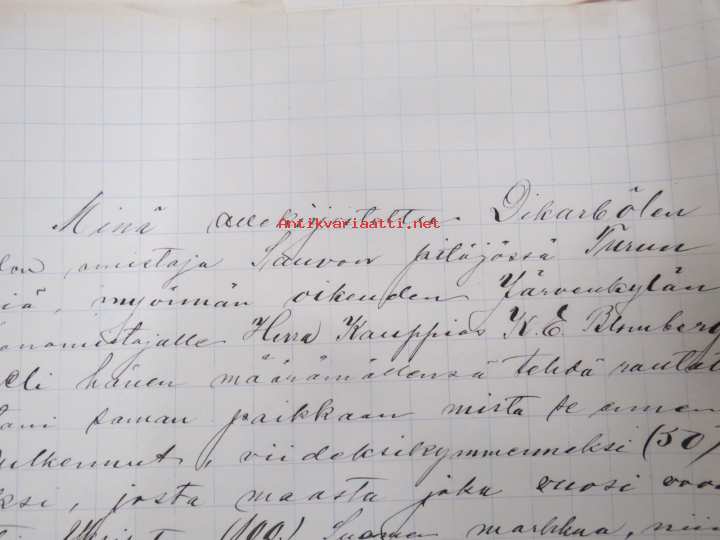 Minä allekirjoittanut Dikarbölen
lon omistaja Sauvon pitäjässä Turun
iä, myönnän oikeuden Järvenkylän
nomistajalle Herra Kauppias K. E. Blomberg
eli hänen määrämällensä tehdä rauta
ani saman paikkaan mistä se ennen
ulkenut, viideksikymmeneksi (50)
ksi, josta maasta joka vuosi vuo
(100) Suomen markkaa, nii
Antikvariaatti.net